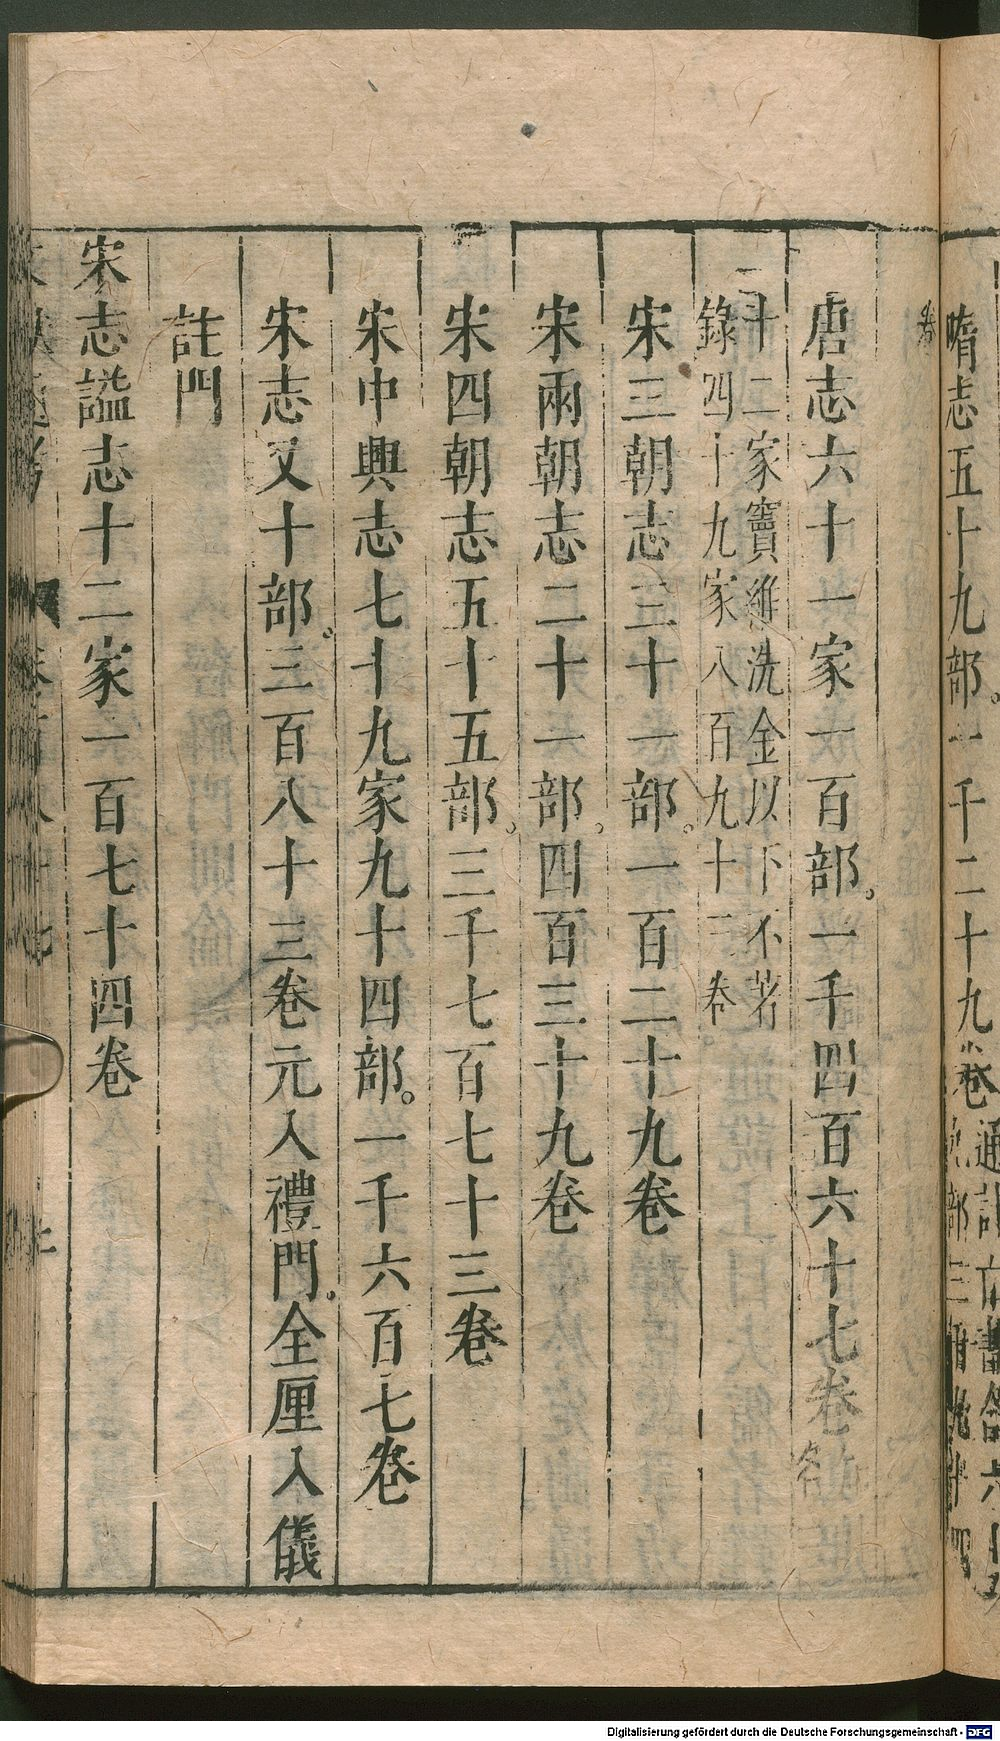 隋志五十九部。一千二十九卷通計亡書合六十
卷
唐志六十一家一百部。一千四百六十七卷失姓名
二十二家竇維洗金以下不著
錄四十九家八百九十二卷
宋三朝志三十一部。一百二十九卷
宋兩朝志二十一部。四百三十九卷
宋四朝志五十五部。三千七百七十三卷
宋中興志七十九家九十四部。一千六百七卷
宋志又十部。三百八十三卷元入禮門。全厘入儀
註門
宋志謚志十二家一百七十四卷
Digitalisierung gefördert durch die Deutsche Forschungsgemeinschaft - DFG